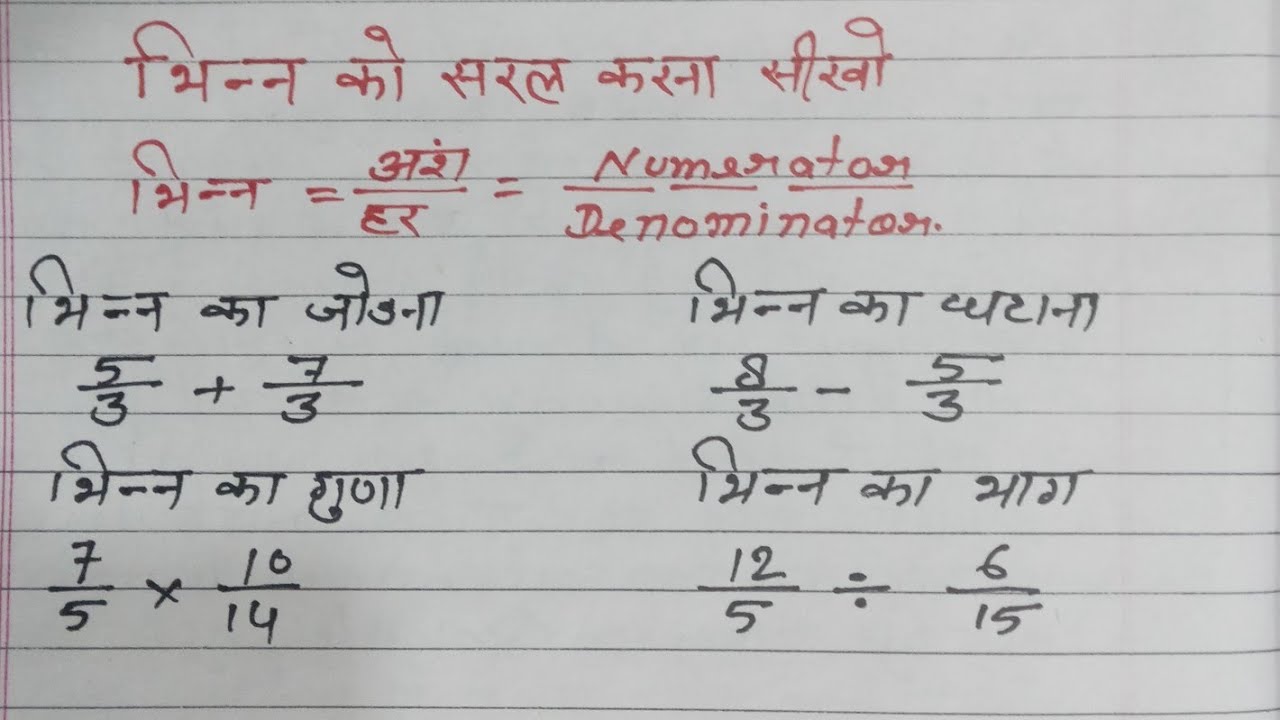 भिन्न को सरल करना सीखो
भिन्न = अंश/हर = Numerator/Denominator.
भिन्न का जोडना
5/3 + 7/3
भिन्न का घटाना
8/3 - 5/3
भिन्न का गुणा
7/5 × 10/14
भिन्न का भाग
12/5 ÷ 6/15